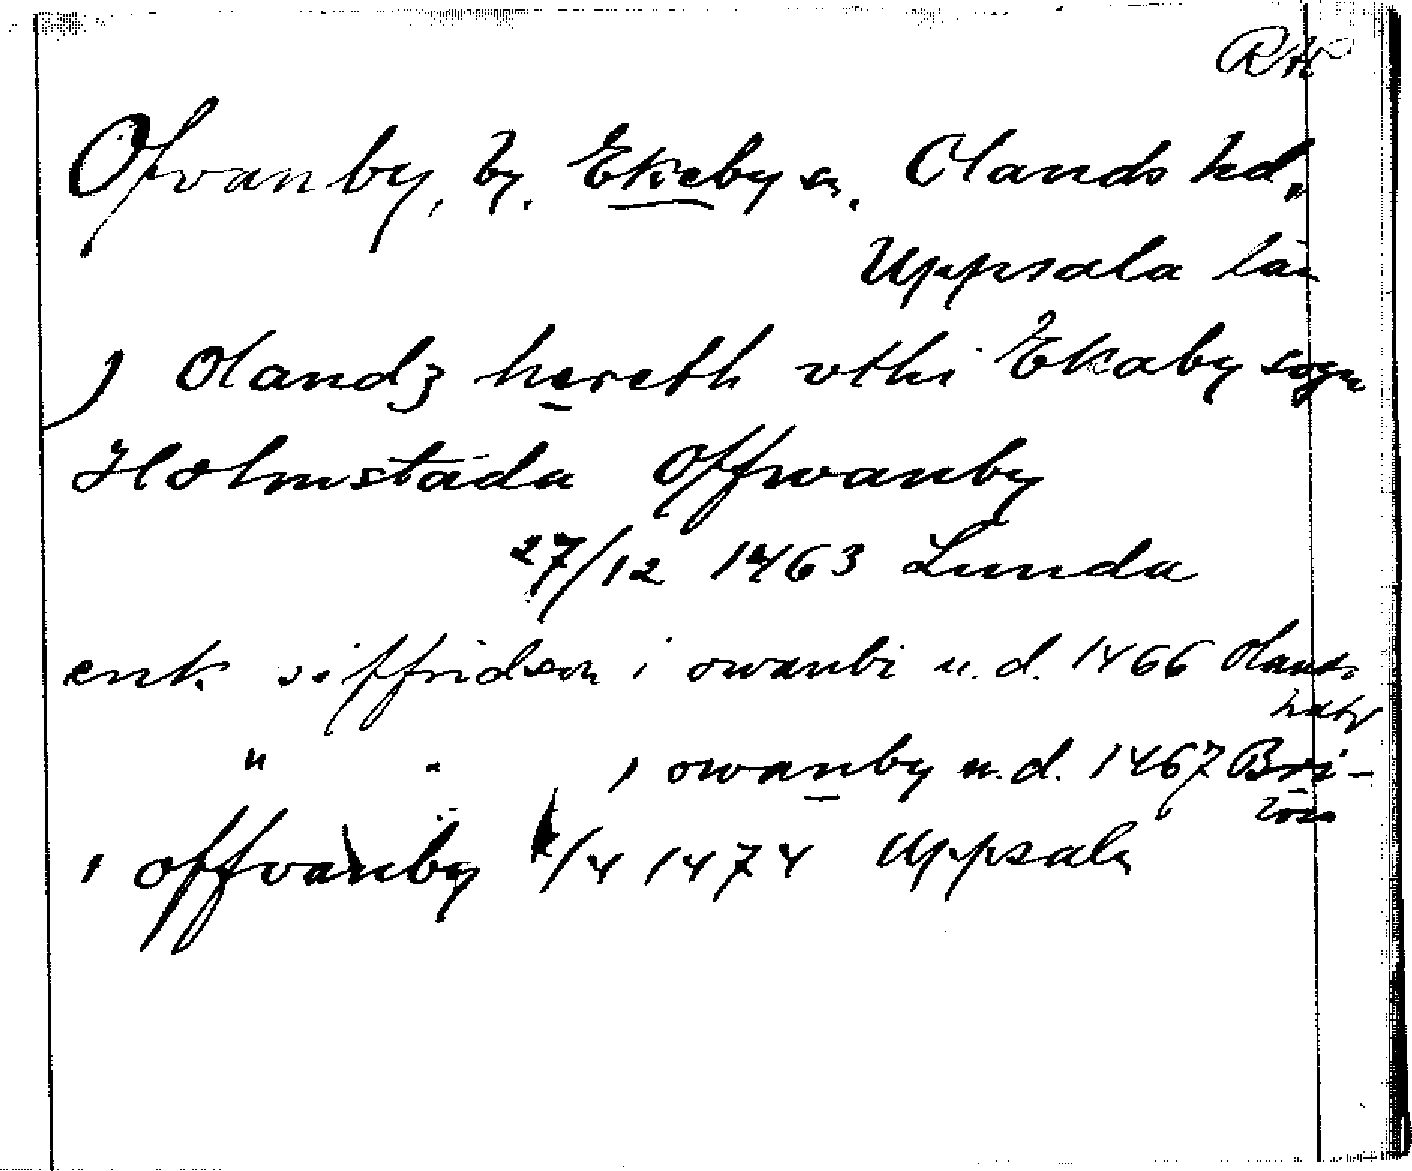 RK
Ofvanby, by. Ekeby sn. Olands hd.
Uppsala län
j Olandz hereth vthi Ekaby sogn
Holmstada Offwanby
27/12 1463 Lunda
erik siffridson i owanbi u.d. 1466 Olands
hdtg
" " i owanby u.d. 1467
i offvanby /4 1474 Uppsala